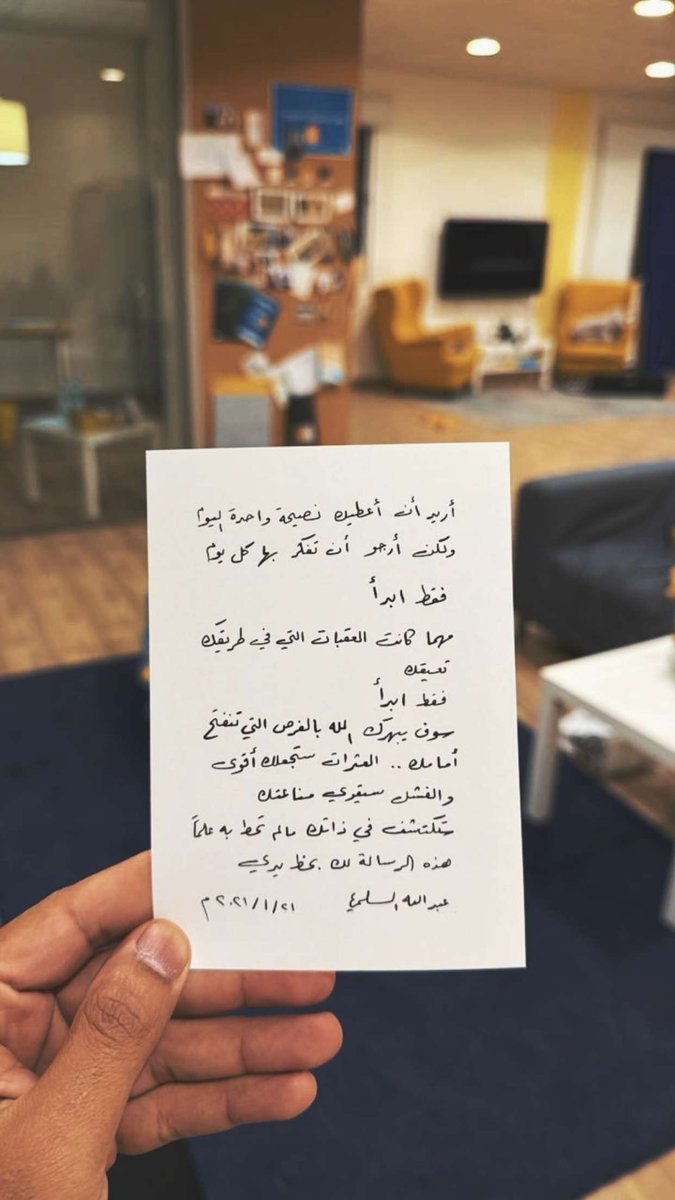 أريد أن أعطيك نصيحة واحدة اليوم
ولكن أرجو أن تفكر بها كل يوم
فقط ابدأ
مهما كانت العقبات التي في طريقك
تعيقك
فقط ابدأ
سوف يبهرك الله بالفرص التي تنفتح
أمامك .. العثرات ستجعلك أقوى
والفشل سيقوي مناعتك
ستكتشف في ذاتك مالم تحط به علماً
هذه الرسالة لك بخط يدي
عبدالله السلمي ٢٠٢١/١/٢١م